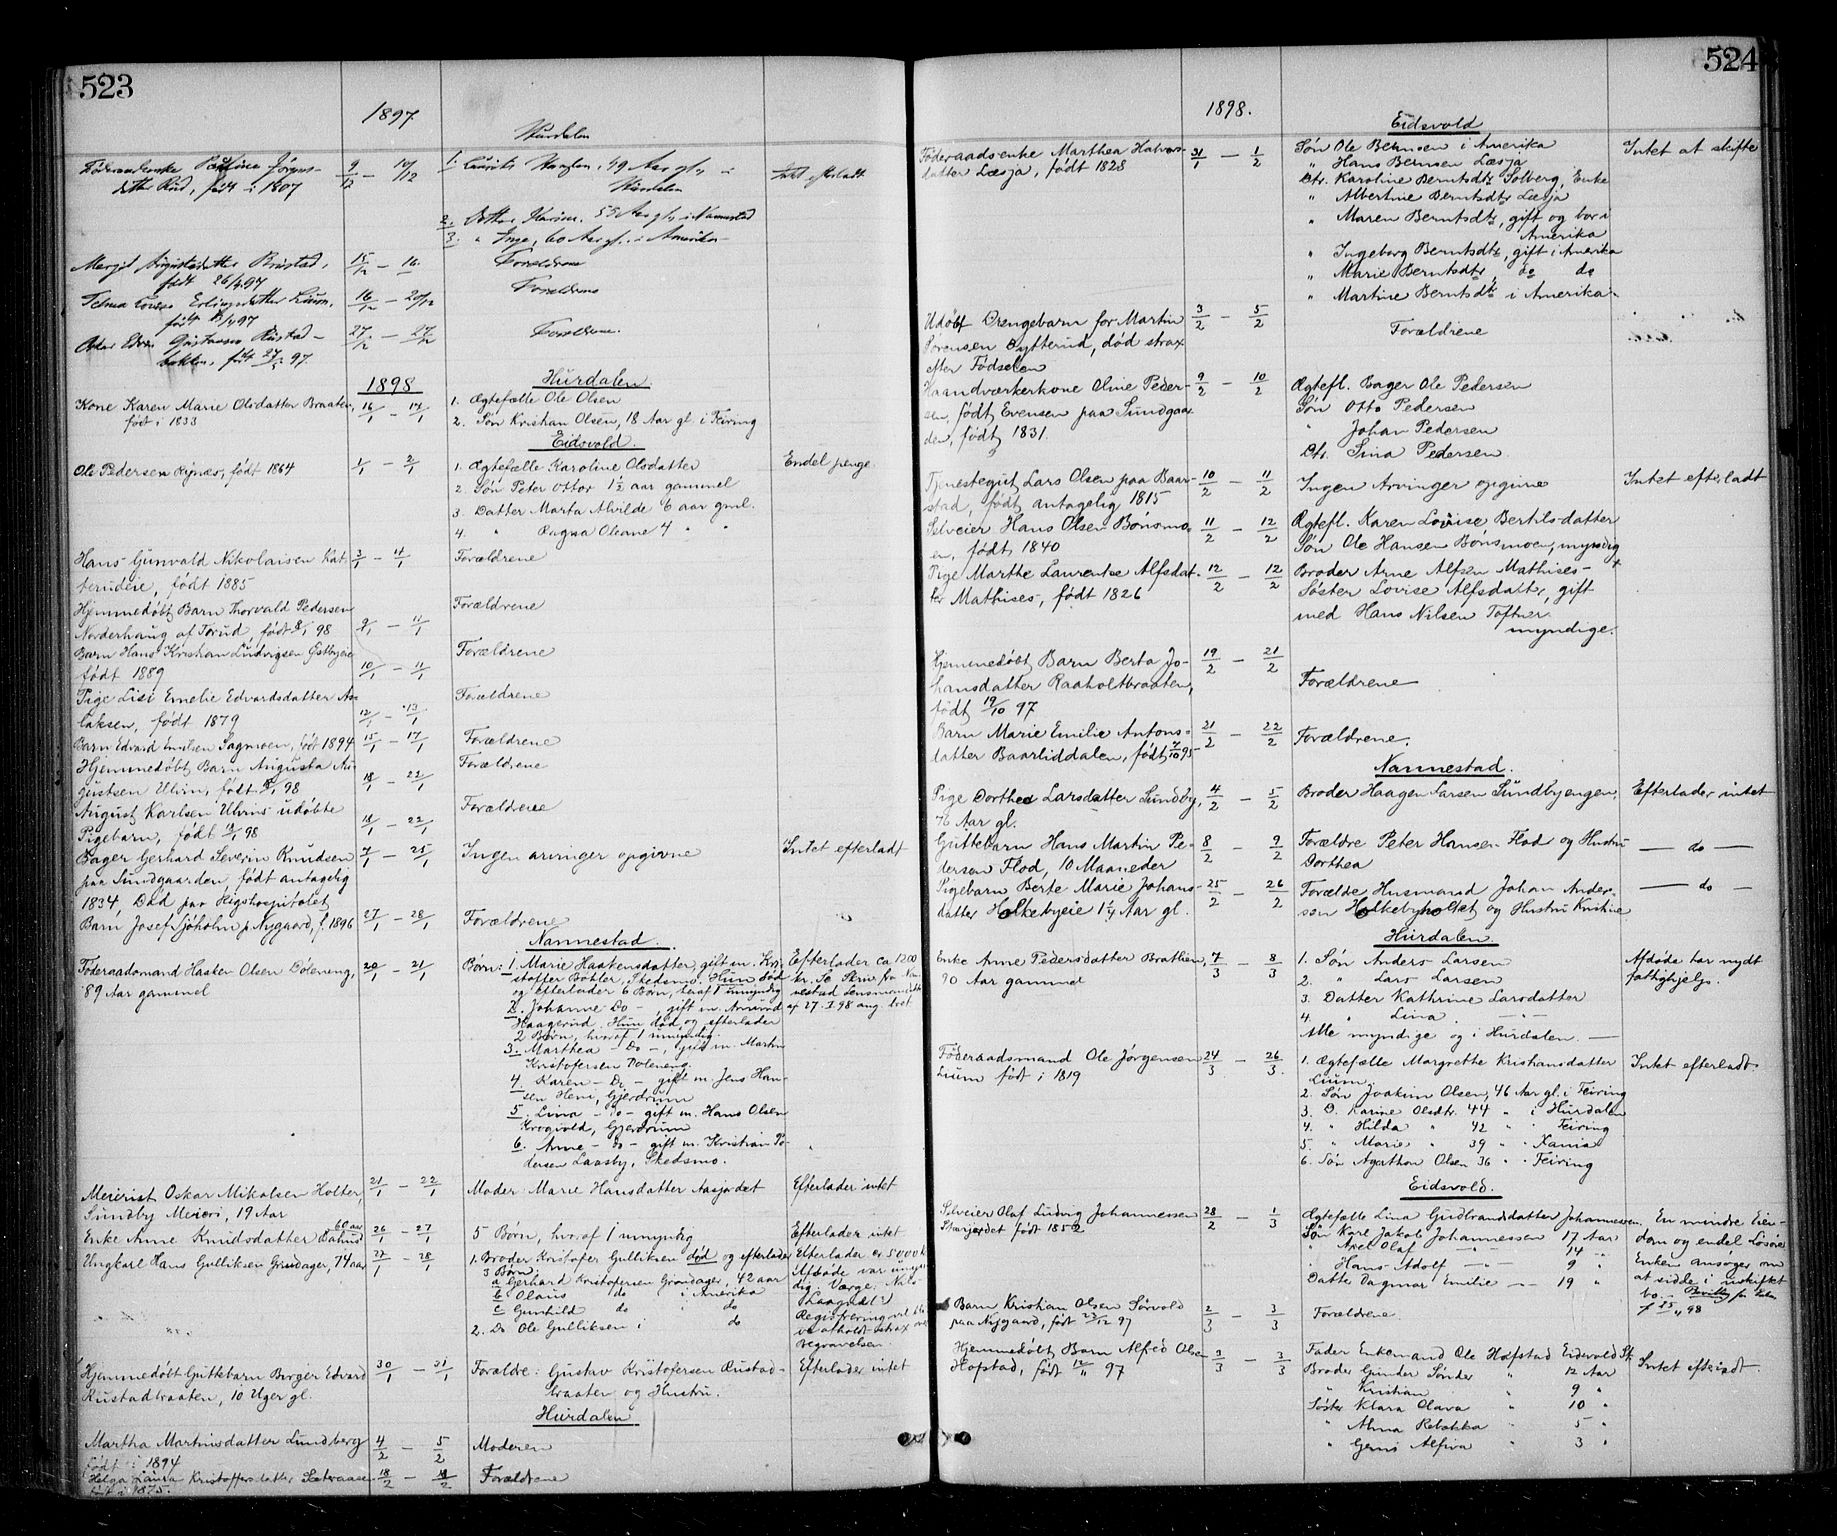 523
1897
Hurdalen
Føderaadsenke Paulina Jørgens-
datter Rud, født i 1807
9/12 — 10/12
1. Laurits 49 Aar gl. i
Hurdalen
Intet efterladt
2. Datter Karine, 55 Aar gl. i Nannestad
3. " Inge, 60 Aar gl. i Amerika
Margit Augustsdatter Rustad,
født 26/4 97
15/12 — 16
Forældrene
Erlingsdatter Lium,
født 97
16/12 — 20/12
Forældrene
Oskar Edvin Gustavsen Rustad-
bakken, født 27/2 97
27/12 — 27/12
Forældrene.
1898
Hurdalen
Kone Karen Marie Olsdatter Braaten,
født i 1833
16/1 — 17/1
1. Ægtefælle Ole Olsen
2. Søn Kristian Olsen, 18 Aar gl. i Feiring
Eidsvold.
Ole Pedersen Rynæs, født 1864
1/1 — 2/1
1. Ægtefælle Karoline Olsdatter
Endel penge
2. Søn Peter Ottor 1½ aar gammel
3. Datter Marta Alvilde 6 aar gml.
4. " Dagna Oleane 4 " "
Hans Gunvald Nikolaisen Kat-
terudeie, født 1885
3/1 — 4/1
Forældrene
Hjemmedøbt Barn Thorvald Pedersen
Norderhaug af Torud, født 8/1 98
9/1 — 11/1
Forældrene
Barn Hans Kristian Ludvigsen Østbyeie
født 1889
10/1 — 11/1
Forældrene
Pige Lisi Emelie Edvardsdatter As-
laksen, født 1879
12/1 — 13/1
Forældrene
Barn Edvard Emilsen Sagmoen, født 1894
15/1 — 17/1
Forældrene
Hjemmedøbt Barn Augusta Au-
gustsen Ulvin, født 98
18/1 — 22/1
Forældrene
August Karlsen Ulvins udøbte
Pigebarn, født 98
18/1 — 22/1
Forældrene
Bager Gerhard Severin Knudsen
paa Sundgaarden født antagelig
1834, Død paa Rigshospitalet
7/1 — 25/1
Ingen arvinger opgivne
Intet efterladt
Barn Josef Sjøholm p. Nygaard, f. 1896
27/1 — 28/1
Forældrene
Nannestad.
Føderaadsmand Haaken Olsen Døleneng,
89 Aar gammel
20/1 — 21/1
Børn: 1. Marie Haakensdatter, gift m. Kri-
stoffer Bøhler, Skedsmo. Hun død
og efterlader 6 Børn, heraf 1 umyndig
2. Johanne Do, gift m. Amund
Haagerud. Hun død og efterlader
2 Børn, hvoraf 1 umyndig
3. Marthea — Do —, gift m. Martin
Kristofersen Døleneng
4. Karen — Do — gift m. Jens Han-
sen Heni, Gjerdrum
5. Lina — Do — gift m. Hans Olsen
Krogvold, Gjerdrum
6. Anne — do — gift m. Kristian Pe-
dersen Laasby, Skedsmo.
Efterlader ca 1200
kr. Se Skriv. fra Nan-
nestad Lensmand
af 27.I.98 ang. boet
Meierist Oskar Mikalsen Holter,
Sundby Meieri, 19 Aar
21/1 — 22/1
Moder: Marie Hansdatter Aasjordet
Efterlader intet
Enke Anne Knudsdatter Dahus 60 aar
26/1 — 27/1
5 Børn, hvoraf 1 umyndig
Efterlader intet
Ungkarl Hans Gulliksen Grindager, 74 aar
27/1 — 28/1
1. Broder Kristofer Gulliksen død og efterlader
3 Børn:
a Gerhard Kristofersen Grøndager, 42 aar
b Olaus do i Amerika
c Gunhild do i do
2. Do Ole Gulliksen i do
Efterlader ca 5000 k
Afdøde var umyn-
dig. Værge: Nils
Laagudt?
Registrering vil bli-
ve afholdt strax over
begravelsen
Hjemmedøbt Guttebarn Birger Edvard
Rustadbraaten, 10 Uger gl.
30/1 — 31/1
Forældre: Gustav Kristofersen Rustad-
braaten og Hustru.
Efterlader intet
Hurdalen
Martha Martinsdatter Lundberg
født i 1894
4/2 — 5/2
Moderen
Helga Laura Kristoffersdatter Sætraasen
født i 1875.
18/2 — 19/2
Forældrene
524
1898.
Eidsvold
Føderaadsenke Marthea Halvors-
datter Læsja, født 1828
31/1 — 1/2
Søn Ole Berntsen i Amerika
" Hans Berntsen Læsja
Dtr. Karoline Berntsdtr Solberg, Enke
" Albertine Berntsdtr Læsja
" Maren Berntsdtr, gift og bor i
Amerika
" Ingeborg Berntsdtr, gift i Amerika
" Marie Berntsdtr, do do
" Martine Berntsdtr i Amerika
Intet at skifte
Udøbt Drengebarn for Martin
Sørensen Dytterud, død strax
efter Fødselen
3/2 — 5/2
Forældrene
Haandværkerkone Oline Peder-
sen, født Evensen paa Sundgaar-
den, født 1831.
9/2 — 10/2
Ægtefl. Bager Ole Pedersen
Søn Otto Pedersen
" Johan Pedersen
Dtr. Sina Pedersen.
Tjenestegut Lars Olsen paa Baar-
stad, født antagelig 1815
10/2 — 11/2
Ingen Arvinger opgivne
Intet efterladt
Selveier Hans Olsen Bønsmo-
en, født 1840
11/2 — 12/2
Ægtefl. Karen Lovise Bertilsdatter
Søn Ole Hansen Bønsmoen, myndig
Pige Marthe Laurentse Alfsdat-
ter Mathises, født 1826
12/2 — 12/2
Broder Arne Alfsen Mathises-
Søster Lovise Alfsdatter, gift
med Hans Nilsen Tofter
myndige.
Hjemmedøbt Barn Berta Jo-
hansdatter Raaholtbraaten,
født 19/10 97
19/2 — 21/2
Forældrene
Barn Marie Emilie Antons-
datter Baarliddalen, født 7/10 95
21/2 — 22/2
Forældrene.
Nannestad.
Pige Dorthea Larsdatter Sundby,
76 Aar gl.
4/2 — 5/2
Broder Haagen Larsen Sundbyengen.
Efterlader intet
Guttebarn Hans Martin Pe-
dersen Flod, 10 Maaneder
8/2 — 9/2
Forældre Peter Hansen Flod og Hustru
Dorthea
— do —
Pigebarn Berte Marie Johans-
datter Holkebyeie 1¼ Aar gl.
25/2 — 26/2
Forældre Husmand Johan Ander-
sen Holkebyholtet og Hustru Kristine
— do —
Hurdalen
Enke Anne Pedersdatter Brathen,
90 Aar gammel
7/3 — 8/3
1. Søn Anders Larsen
2. " Lars Larsen
3. Datter Kathrine Larsdatter
4. " Lina — " —
Alle myndige og i Hurdalen. —
Afdøde har nydt
fattighjelp.
Føderaadsmand Ole Jørgensen
Lium født i 1819
24/3 — 26/3
1. Ægtefælle Margrethe Kristiansdatter
Lium.
2. Søn Joakim Olsen, 46 Aar gl. i Feiring
3. D. Karine Olsdtr. 44 " i Hurdalen
4. " Hilda " 42 " " Feiring
5. " Marie " 39 " " Xania
6. Søn Agathon Olsen 36 " " Feiring
Intet efterladt.
Eidsvold.
Selveier Olaf Ludvig Johannessen
født 1852
28/2 — 1/3
Ægtefælle Lina Gudbrandsdatter Johannessen
Søn Karl Jakob Johannessen 17 Aar
" Axel Olaf — " — 14 "
" Hans Adolf — " — 9 "
Datter Dagmar Emilie — " — 19 "
En mindre Eien-
dom og endel Løsøre
Enken ansøger om
at sidde i uskiftet
bo. Bevilling for Enken
f 25/11 98
Barn Kristian Olsen Sørvold
paa Nygaard, født 23/12 97
2/3 — 3/3
Forældrene
Hjemmedøbt Barn Alfred Olsen
Hofstad, født 12/11 97
3/3 — 3/3
Fader Enkemand Ole Hofstad Eidsvold St.
Broder Gunder Sønder " 12 Aar
" Kristian " 9 "
Søster Klara Olava " 10 "
" Anna Rebekka " 5 "
" Gerni Alfiva " 3 "
Intet efterladt.